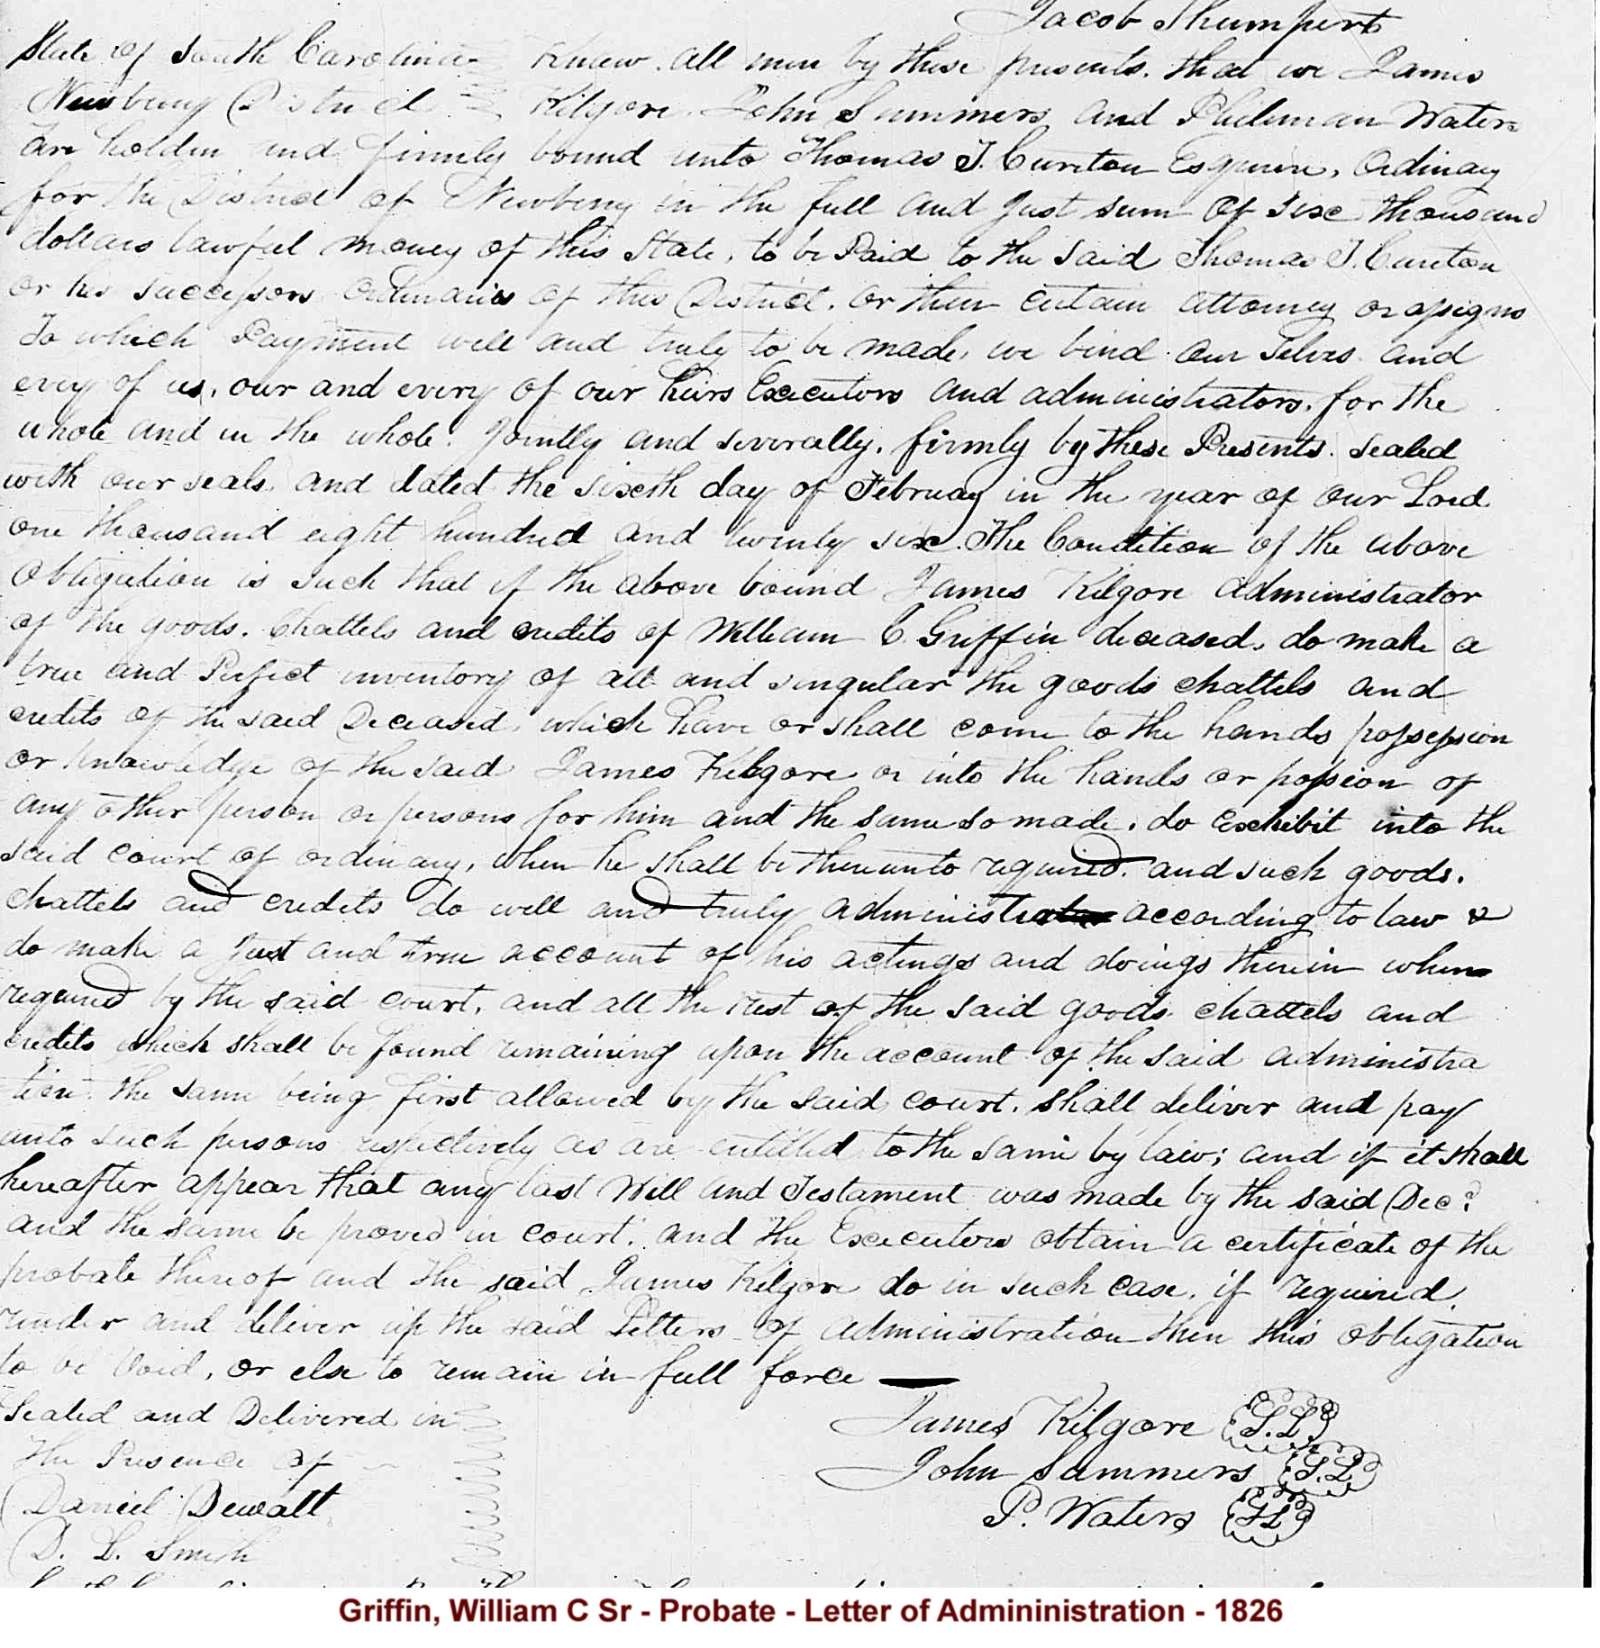 Jacob Shumpert
State of South Carolina Know all men by these presents. that we James
Newberry District Kilgore. John Summers and Philemon Waters
are holden and firmly bound unto Thomas T. Cureton Esquire, Ordinary
for the District of Newberry in the full and Just sum of six thousand
dollars lawful money of this State, to be Paid to the said Thomas T. Cureton
or his successors Ordinaries of this District. or their certain attorney or assigns
To which Payment well and truly to be made, we bind our selves and
every of us, our and every of our heirs Executors and administrators. for the
whole and in the whole. Jointly and severally, firmly by these Presents. sealed
with our seals and dated the sixth day of February in the year of our Lord
one thousand eight hundred and twenty six. The Condition of the above
Obligation is such that if the above bound James Kilgore administrator
of the goods. chattels and credits of William C. Griffin deceased, do make a
true and Perfect inventory of all and singular the goods chattels and
credits of the said Deceased, which have or shall come to the hands possession
or knowledge of the said James Kilgore or into the hands or possion of
any other person or persons for him and the same so made, do exhibit into the
said court of ordinary, when he shall be thereunto required. and such goods.
chattels and credits do well and truly administer according to law &
do make a Just and true account of his actings and doings therein when
required by the said court, and all the rest of the said goods chattels and
credits which shall be found remaining upon the account of the said administra
tion the same being first allowed by the said court. shall deliver and pay
unto such persons respectively as are entitled to the same by law; and if it shall
hereafter appear that any last Will and Testament was made by the said Decd
and the same be proved in court. and the Executors obtain a certificate of the
probate thereof and the said James Kilgore do in such case, if required,
render and deliver up the said Letters of administration then this obligation
to be Void, or else to remain in full force
Sealed and Delivered in James Kilgore (L.S.)
the Presence of John Summers (L.S.)
Daniel Dewalt P. Waters (L.S.)
D. L. Smith
Griffin, William C Sr - Probate - Letter of Admininistration - 1826